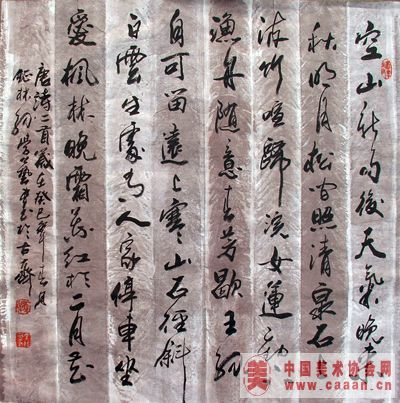 空山新雨後天氣晚来
秋明月松间照清泉石上
流竹喧歸浣女蓮動下
漁舟随意春芳歇王孙
自可留遠上寒山石径斜
白雲生處有人家停車坐
愛楓林晚霜葉红於二月花
唐诗二首歲在癸巳年春月
林 書於古
美 中国美术协会网
www.caaan.cn